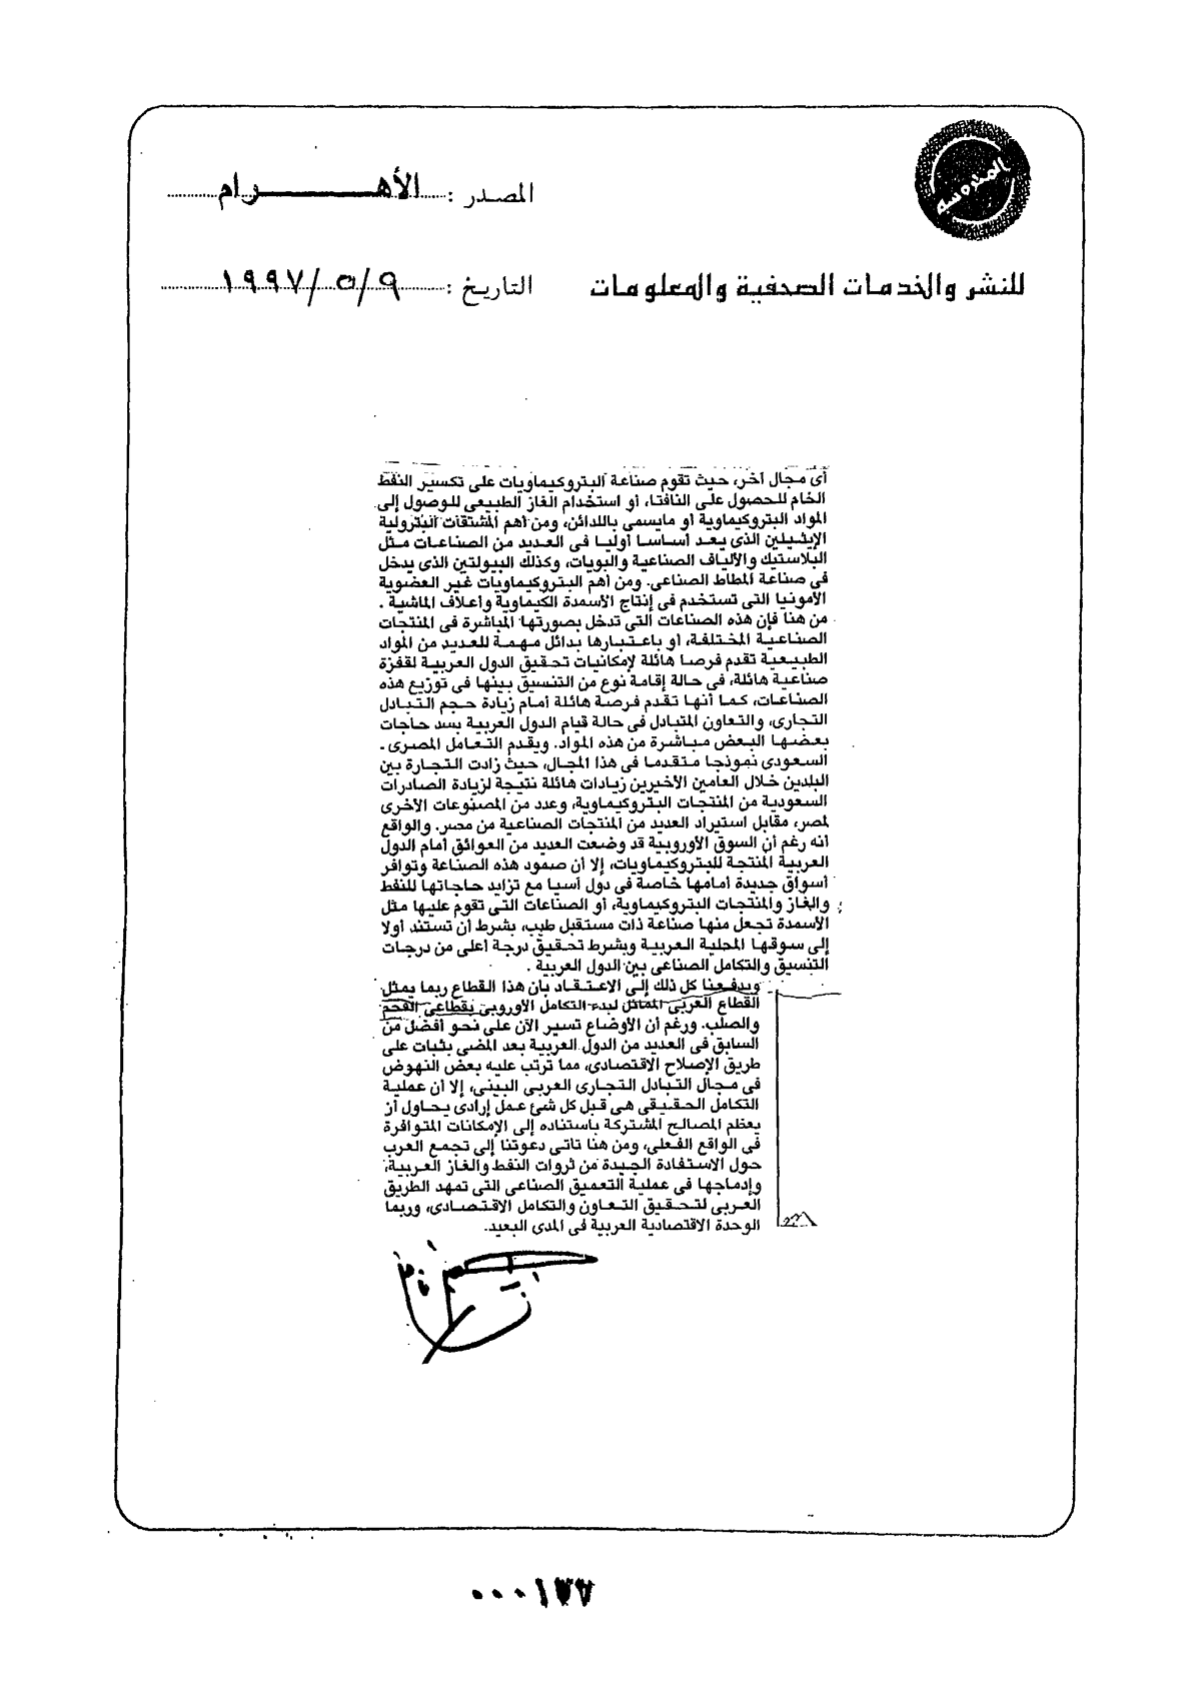 المدوسة
المصدر : الأهرام
للنشر والخدمات الصحفية والمعلومات
التاريخ : ٩/٥/١٩٩٧
أى مجال آخر، حيث تقوم صناعة البتروكيماويات على تكسير النفط
الخام للحصول على النافتا، أو استخدام الغاز الطبيعى للوصول إلى
المواد البتروكيماوية أو مايسمى باللدائن، ومن أهم المشتقات البترولية
الإيثيلين الذى يعد أساسا أوليا فى العديد من الصناعات مثل
البلاستيك والألياف الصناعية والبويات، وكذلك البيولتين الذى يدخل
فى صناعة المطاط الصناعى. ومن أهم البتروكيماويات غير العضوية
الأمونيا التى تستخدم فى إنتاج الأسمدة الكيماوية وأعلاف الماشية .
من هنا فإن هذه الصناعات التى تدخل بصورتها المباشرة فى المنتجات
الصناعية المختلفة، أو باعتبارها بدائل مهمة للعديد من المواد
الطبيعية تقدم فرصا هائلة لإمكانيات تحقيق الدول العربية لقفزة
صناعية هائلة، فى حالة إقامة نوع من التنسيق بينها فى توزيع هذه
الصناعات، كما أنها تقدم فرصة هائلة أمام زيادة حجم التبادل
التجارى، والتعاون المتبادل فى حالة قيام الدول العربية بسد حاجات
بعضها البعض مباشرة من هذه المواد. ويقدم التعامل المصرى ـ
السعودى نموذجا متقدما فى هذا المجال، حيث زادت التجارة بين
البلدين خلال العامين الأخيرين زيادات هائلة نتيجة لزيادة الصادرات
السعودية من المنتجات البتروكيماوية، وعدد من المصنوعات الأخرى
لمصر، مقابل استيراد العديد من المنتجات الصناعية من مصر. والواقع
أنه رغم أن السوق الأوروبية قد وضعت العديد من العوائق أمام الدول
العربية المنتجة للبتروكيماويات، إلا أن صمود هذه الصناعة وتوافر
أسواق جديدة أمامها خاصة فى دول آسيا مع تزايد حاجاتها للنفط
والغاز والمنتجات البتروكيماوية، أو الصناعات التى تقوم عليها مثل
الأسمدة تجعل منها صناعة ذات مستقبل طيب، بشرط أن تستند أولا
إلى سوقها المحلية العربية وبشرط تحقيق درجة أعلى من درجات
التنسيق والتكامل الصناعى بين الدول العربية .
ويدفعنا كل ذلك إلى الاعتقاد بأن هذا القطاع ربما يمثل
القطاع العربى المماثل لبدء التكامل الأوروبى بقطاعى الفحم
والصلب. ورغم أن الأوضاع تسير الآن على نحو أفضل من
السابق فى العديد من الدول العربية بعد المضى بثبات على
طريق الإصلاح الاقتصادى، مما ترتب عليه بعض النهوض
فى مجال التبادل التجارى العربى البينى، إلا أن عملية
التكامل الحقيقى هى قبل كل شئ عمل إرادى يحاول أن
يعظم المصالح المشتركة باستناده إلى الإمكانات المتوافرة
فى الواقع الفعلى، ومن هنا تأتى دعوتنا إلى تجمع العرب
حول الاستفادة الجيدة من ثروات النفط والغاز العربية،
وإدماجها فى عملية التعميق الصناعى التى تمهد الطريق
العربى لتحقيق التعاون والتكامل الاقتصادى، وربما
الوحدة الاقتصادية العربية فى المدى البعيد.